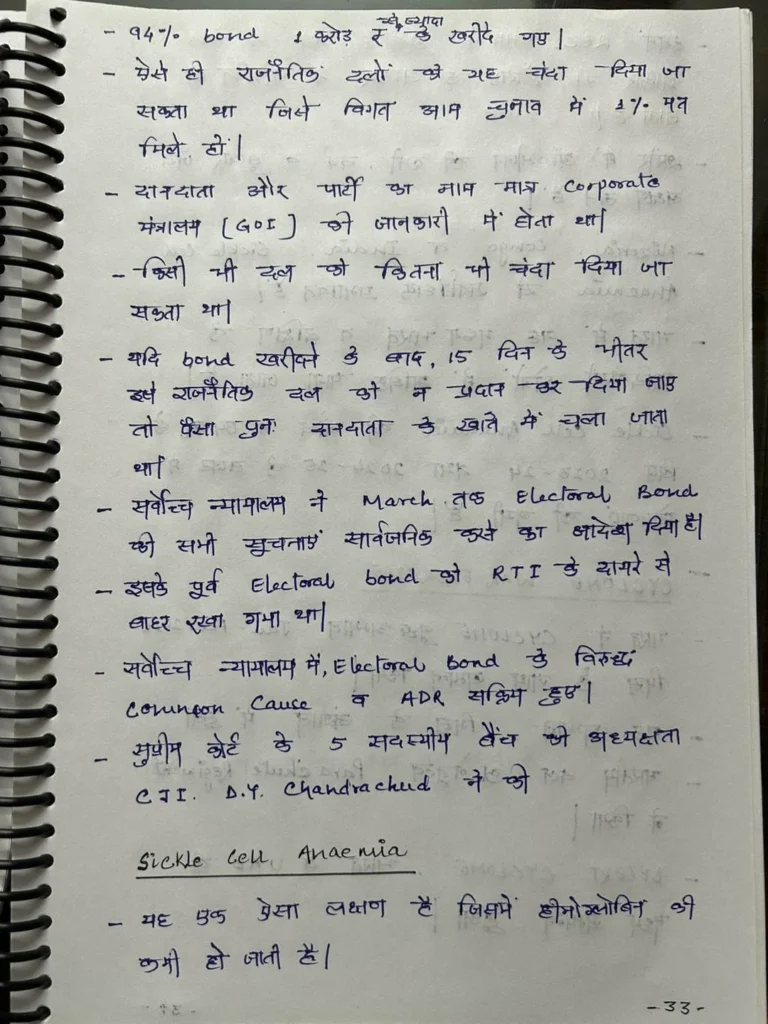 - 94% bond 1 करोड़ रु से ज्यादा के खरीदे गए।
- ऐसे ही राजनैतिक दलों को यह चंदा दिया जा
सकता था जिसे विगत आम चुनाव में 1% मत
मिले हों।
- दानदाता और पार्टी का नाम मात्र Corporate
मंत्रालय [GOI] की जानकारी में होता था।
- किसी भी दल को कितना भी चंदा दिया जा
सकता था।
- यदि bond खरीदने के बाद, 15 दिन के भीतर
इसे राजनैतिक दल को न प्रदान कर दिया जाए
तो पैसा पुनः दानदाता के खाते में चला जाता
था।
- सर्वोच्च न्यायालय ने March तक Electoral Bond
की सभी सूचनाएं सार्वजनिक करने का आदेश दिया है।
- इसके पूर्व Electoral bond को RTI के दायरे से
बाहर रखा गया था।
- सर्वोच्च न्यायालय में, Electoral Bond के विरुद्ध
Common Cause व ADR सक्रिय हुए।
- सुप्रीम कोर्ट के 5 सदस्यीय बैंच की अध्यक्षता
CJI. D.Y. Chandrachud ने की
Sickle Cell Anaemia
- यह एक ऐसा लक्षण है जिसमें हीमोग्लोबिन की
कमी हो जाती है।
-33-